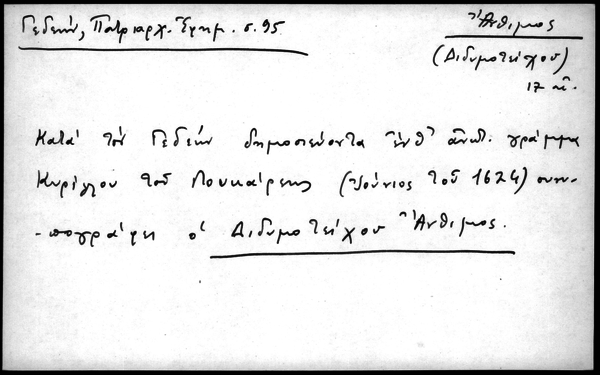 Γεδεών, Πατριαρχ. Ἐφημ. σ. 95
Ἄνθιμος
(Διδυμοτείχου)
17 αἰ.
Κατά τόν Γεδεών δημοσιεύοντα ἐνθ' ἀνωτ. γράμμα
Κυρίλλου τοῦ Λουκάρεως (Ἰούνιος τοῦ 1624) συνυ-
-πογράφει ὁ Διδυμοτείχου Ἄνθιμος.